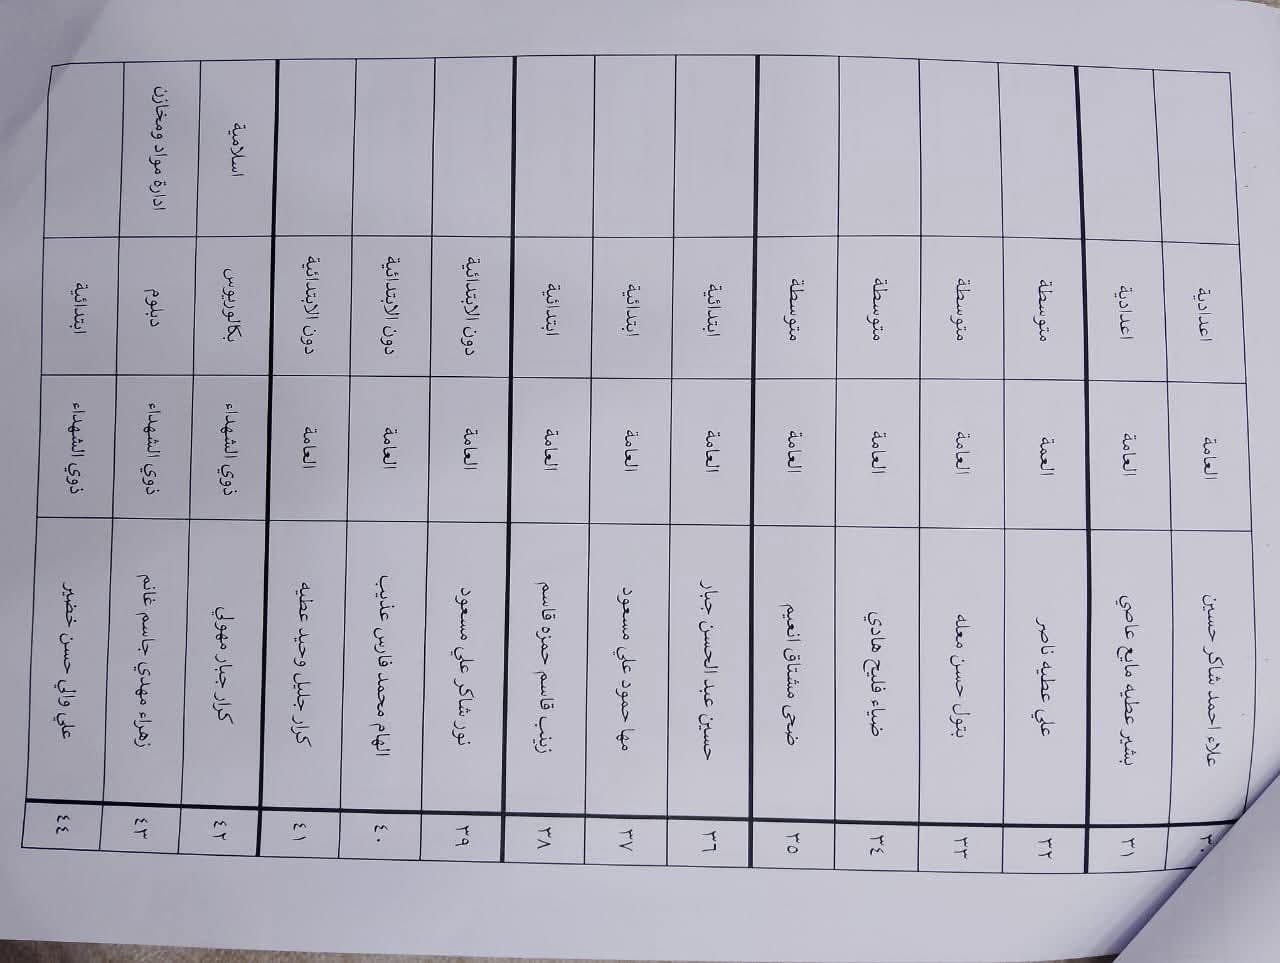 ٣٠ علاء احمد شاكر حسين العامة اعدادية
٣١ بشير عطيه مايع عاصي العامة اعدادية
٣٢ علي عطيه ناصر العمة متوسطة
٣٣ بتول حسن معله العامة متوسطة
٣٤ ضياء فليح هادي العامة متوسطة
٣٥ ضحى مشتاق انعيم العامة متوسطة
٣٦ حسين عبد الحسن جبار العامة ابتدائية
٣٧ مها حمود علي مسعود العامة ابتدائية
٣٨ زينب قاسم حمزه قاسم العامة ابتدائية
٣٩ نور شاكر علي مسعود العامة دون الابتدائية
٤٠ الهام محمد فارس عذيب العامة دون الابتدائية
٤١ كرار جليل وحيد عطيه العامة دون الابتدائية
٤٢ كرار جبار مهولي ذوي الشهداء بكالوريوس اسلامية
٤٣ زهراء مهدي جاسم غانم ذوي الشهداء دبلوم ادارة مواد ومخازن
٤٤ علي والي حسن خضير ذوي الشهداء ابتدائية